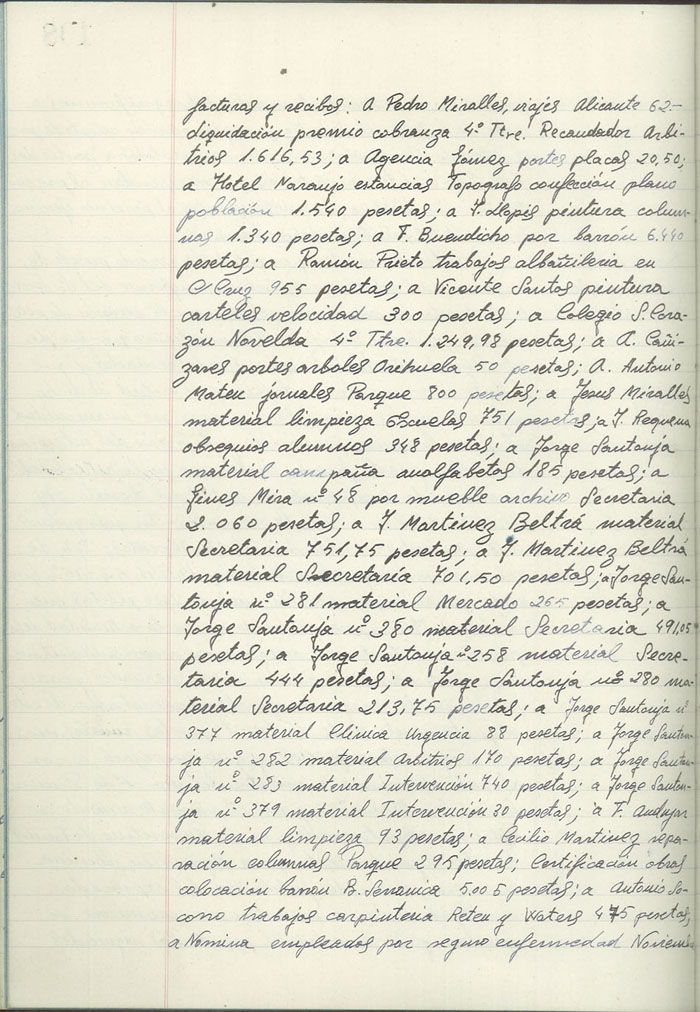 facturas y recibos: A Pedro Miralles, viajes Alicante 62.-
Liquidación premio cobranza 4º Ttre. Recaudador Arbi-
trios 1.616,53; a Agencia Gómez portes placas 20,50;
a Hotel Naranjo estancias Topografo confección plano
población 1.540 pesetas; a J. Llopis pintura colum-
nas 1.340 pesetas; a F. Buendicho por barrón 6.440
pesetas; a Ramón Prieto trabajos albañileria en
C/ Cruz 955 pesetas; a Vicente Santos pintura
carteles velocidad 300 pesetas; a Colegio S. Cora-
zón Novelda 4º Ttre. 1.249,98 pesetas; a A. Cañi-
zares portes arboles Orihuela 50 pesetas; A. Antonio
Mateu jornales Parque 800 pesetas; a Jesus Miralles
material limpieza Escuelas 751 pesetas; a J. Requena
obsequios alumnos 348 pesetas; a Jorge Santonja
material campaña analfabetos 185 pesetas; a
Gines Mira nº 48 por mueble archivo Secretaria
2.060 pesetas; a J. Martinez Beltrá material
Secretaria 751,75 pesetas; a J. Martinez Beltrá
material Secretaría 701,50 pesetas; a Jorge San-
tonja nº 281 material Mercado 265 pesetas; a
Jorge Santonja nº 380 material Secretaria 491,05
pesetas; a Jorge Santonja nº 258 material Secre-
taria 444 pesetas; a Jorge Santonja nº 280 ma-
terial Secretaria 213,75 pesetas; a Jorge Santonja nº
377 material Clinica Urgencia 88 pesetas; a Jorge Santon-
ja nº 282 material Arbitrios 170 pesetas; a Jorge Santon-
ja nº 283 material Intervención 740 pesetas; a Jorge Santon-
ja nº 379 material Intervención 80 pesetas; a F. Andujar
material limpieza 93 pesetas; a Cecilio Martinez repa-
ración columnas Parque 295 pesetas; Certificación obras
colocación barrón B. Serranica 5.005 pesetas; a Antonio So-
cono trabajos carpinteria Reten y Waters 475 pesetas;
a Nomina empleados por seguro enfermedad Noviembre